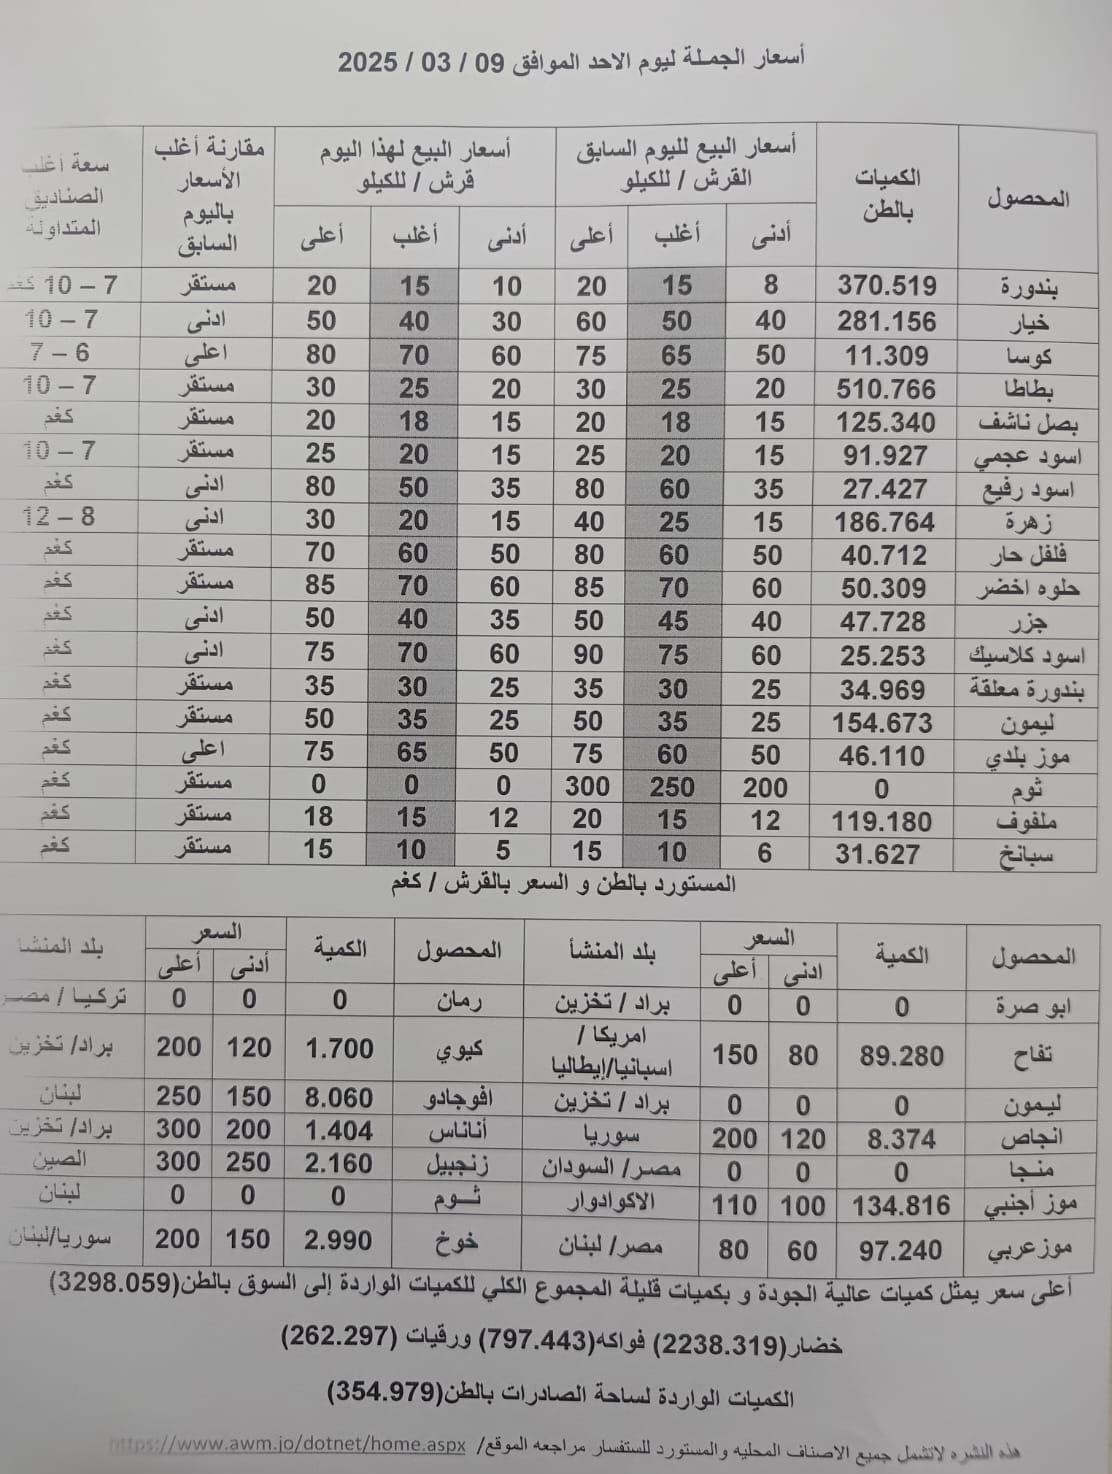 أسعار الجملة ليوم الاحد الموافق 09 / 03 / 2025
المحصول | الكميات بالطن | أسعار البيع لليوم السابق القرش / للكيلو | أسعار البيع لهذا اليوم قرش / للكيلو | مقارنة أغلب الأسعار باليوم السابق | سعة أغلب الصناديق المتداولة
أدنى | أغلب | أعلى | أدنى | أغلب | أعلى
بندورة | 370.519 | 8 | 15 | 20 | 10 | 15 | 20 | مستقر | 7 – 10 كغم
خيار | 281.156 | 40 | 50 | 60 | 30 | 40 | 50 | ادنى | 7 – 10
كوسا | 11.309 | 50 | 65 | 75 | 60 | 70 | 80 | اعلى | 6 – 7
بطاطا | 510.766 | 20 | 25 | 30 | 20 | 25 | 30 | مستقر | 7 – 10
بصل ناشف | 125.340 | 15 | 18 | 20 | 15 | 18 | 20 | مستقر | كغم
اسود عجمي | 91.927 | 15 | 20 | 25 | 15 | 20 | 25 | مستقر | 7 – 10
اسود رفيع | 27.427 | 35 | 60 | 80 | 35 | 50 | 80 | ادنى | كغم
زهرة | 186.764 | 15 | 25 | 40 | 15 | 20 | 30 | ادنى | 8 – 12
فلفل حار | 40.712 | 50 | 60 | 80 | 50 | 60 | 70 | مستقر | كغم
حلوه اخضر | 50.309 | 60 | 70 | 85 | 60 | 70 | 85 | مستقر | كغم
جزر | 47.728 | 40 | 45 | 50 | 35 | 40 | 50 | ادنى | كغم
اسود كلاسيك | 25.253 | 60 | 75 | 90 | 60 | 70 | 75 | ادنى | كغم
بندورة معلقة | 34.969 | 25 | 30 | 35 | 25 | 30 | 35 | مستقر | كغم
ليمون | 154.673 | 25 | 35 | 50 | 25 | 35 | 50 | مستقر | كغم
موز بلدي | 46.110 | 50 | 60 | 75 | 50 | 65 | 75 | اعلى | كغم
ثوم | 0 | 200 | 250 | 300 | 0 | 0 | 0 | مستقر | كغم
ملفوف | 119.180 | 12 | 15 | 20 | 12 | 15 | 18 | مستقر | كغم
سبانخ | 31.627 | 6 | 10 | 15 | 5 | 10 | 15 | مستقر | كغم
المستورد بالطن و السعر بالقرش / كغم
المحصول | الكمية | السعر | بلد المنشأ | المحصول | الكمية | السعر | بلد المنشأ
ادنى | أعلى | أدنى | أعلى
ابو صرة | 0 | 0 | 0 | براد / تخزين | رمان | 0 | 0 | 0 | تركيا / مصر
تفاح | 89.280 | 80 | 150 | امريكا / اسبانيا/إيطاليا | كيوي | 1.700 | 120 | 200 | براد/ تخزين
ليمون | 0 | 0 | 0 | براد / تخزين | افوجادو | 8.060 | 150 | 250 | لبنان
انجاص | 8.374 | 120 | 200 | سوريا | أناناس | 1.404 | 200 | 300 | براد/ تخزين
منجا | 0 | 0 | 0 | مصر/ السودان | زنجبيل | 2.160 | 250 | 300 | الصين
موز أجنبي | 134.816 | 100 | 110 | الاكوادوار | ثوم | 0 | 0 | 0 | لبنان
موز عربي | 97.240 | 60 | 80 | مصر/ لبنان | خوخ | 2.990 | 150 | 200 | سوريا/لبنان
أعلى سعر يمثل كميات عالية الجودة و بكميات قليلة المجموع الكلي للكميات الواردة إلى السوق بالطن(3298.059)
خضار(2238.319) فواكه(797.443) ورقيات (262.297)
الكميات الواردة لساحة الصادرات بالطن(354.979)
هذه النشره لاتشمل جميع الاصناف المحليه والمستورد للستفسار مراجعه الموقع/ https://www.awm.jo/dotnet/home.aspx